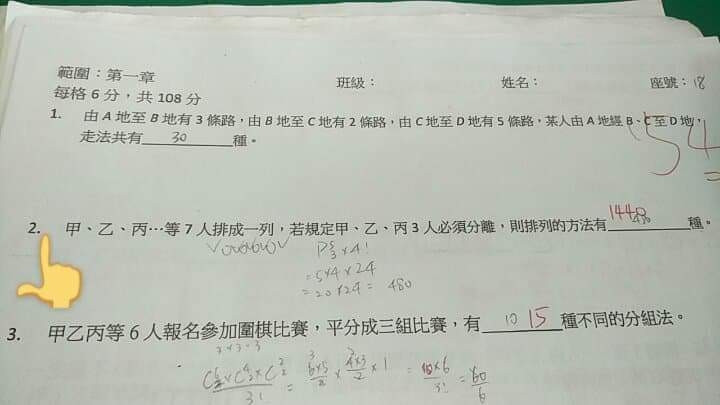 範圍：第一章
班級： 姓名： 座號：18
每格 6 分，共 108 分
1. 由 A 地至 B 地有 3 條路，由 B 地至 C 地有 2 條路，由 C 地至 D 地有 5 條路，某人由 A 地經 B、C 至 D 地，
走法共有 30 種。
54
2. 甲、乙、丙…等 7 人排成一列，若規定甲、乙、丙 3 人必須分離，則排列的方法有 1440 480 種。
V0V0V0V0V P⁵₃×4!
=5×4×24
=20×24= 480
3. 甲乙丙等 6 人報名參加圍棋比賽，平分成三組比賽，有 10 15 種不同的分組法。
C⁶₂×C⁴₂×C²₂ / 3! = 6×5/2 × 4×3/2 ×1 = 10×6/3! = 60/6